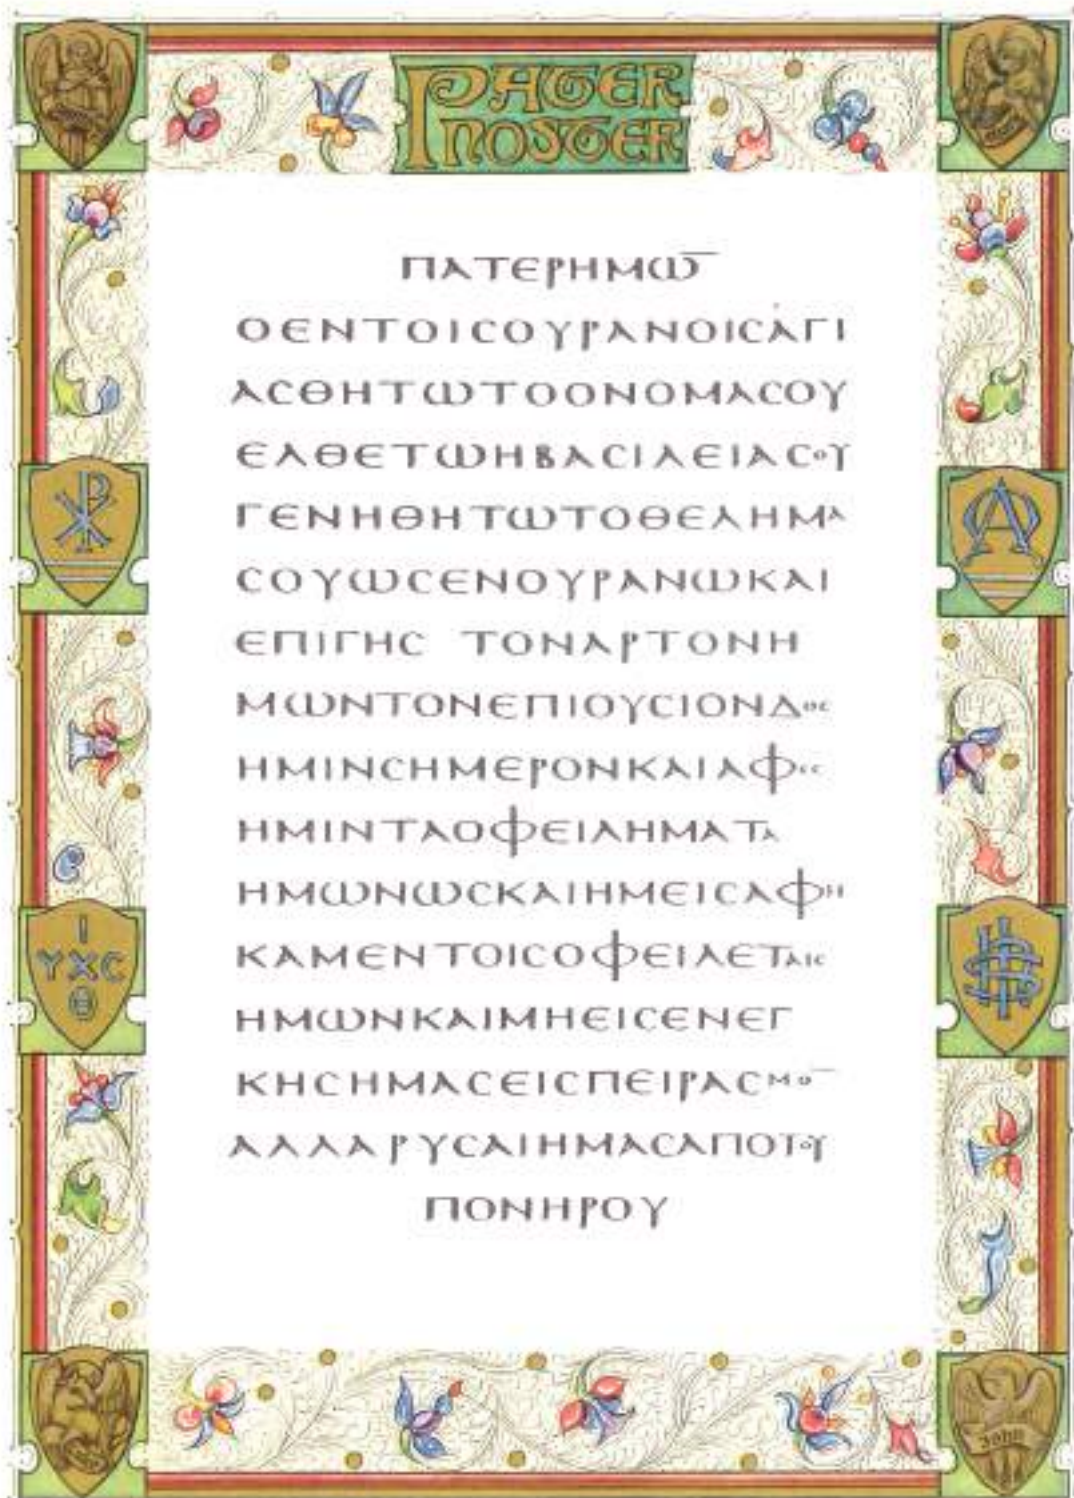 PATER
NOSTER
ΠΑΤΕΡΗΜΩ̅
ΟΕΝΤΟΙϹΟΥΡΑΝΟΙϹΑΓΙ
ΑϹΘΗΤΩΤΟΟΝΟΜΑϹΟΥ
ΕΛΘΕΤΩΗΒΑϹΙΛΕΙΑϹΟΥ
ΓΕΝΗΘΗΤΩΤΟΘΕΛΗΜΑ
ϹΟΥΩϹΕΝΟΥΡΑΝΩΚΑΙ
ΕΠΙΓΗϹ ΤΟΝΑΡΤΟΝΗ
ΜΩΝΤΟΝΕΠΙΟΥϹΙΟΝΔΟϹ
ΗΜΙΝϹΗΜΕΡΟΝΚΑΙΑΦΕϹ
ΗΜΙΝΤΑΟΦΕΙΛΗΜΑΤΑ
ΗΜΩΝΩϹΚΑΙΗΜΕΙϹΑΦΗ
ΚΑΜΕΝΤΟΙϹΟΦΕΙΛΕΤΑΙϹ
ΗΜΩΝΚΑΙΜΗΕΙϹΕΝΕΓ
ΚΗϹΗΜΑϹΕΙϹΠΕΙΡΑϹΜΟ̅
ΑΛΛΑΡΥϹΑΙΗΜΑϹΑΠΟΤΟΥ
ΠΟΝΗΡΟΥ
Ι
ΥΧϹ
Θ
IHS
John